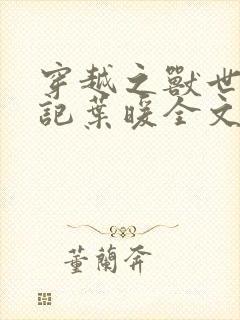 穿越之獸世
記葉暖全文
董蘭奔